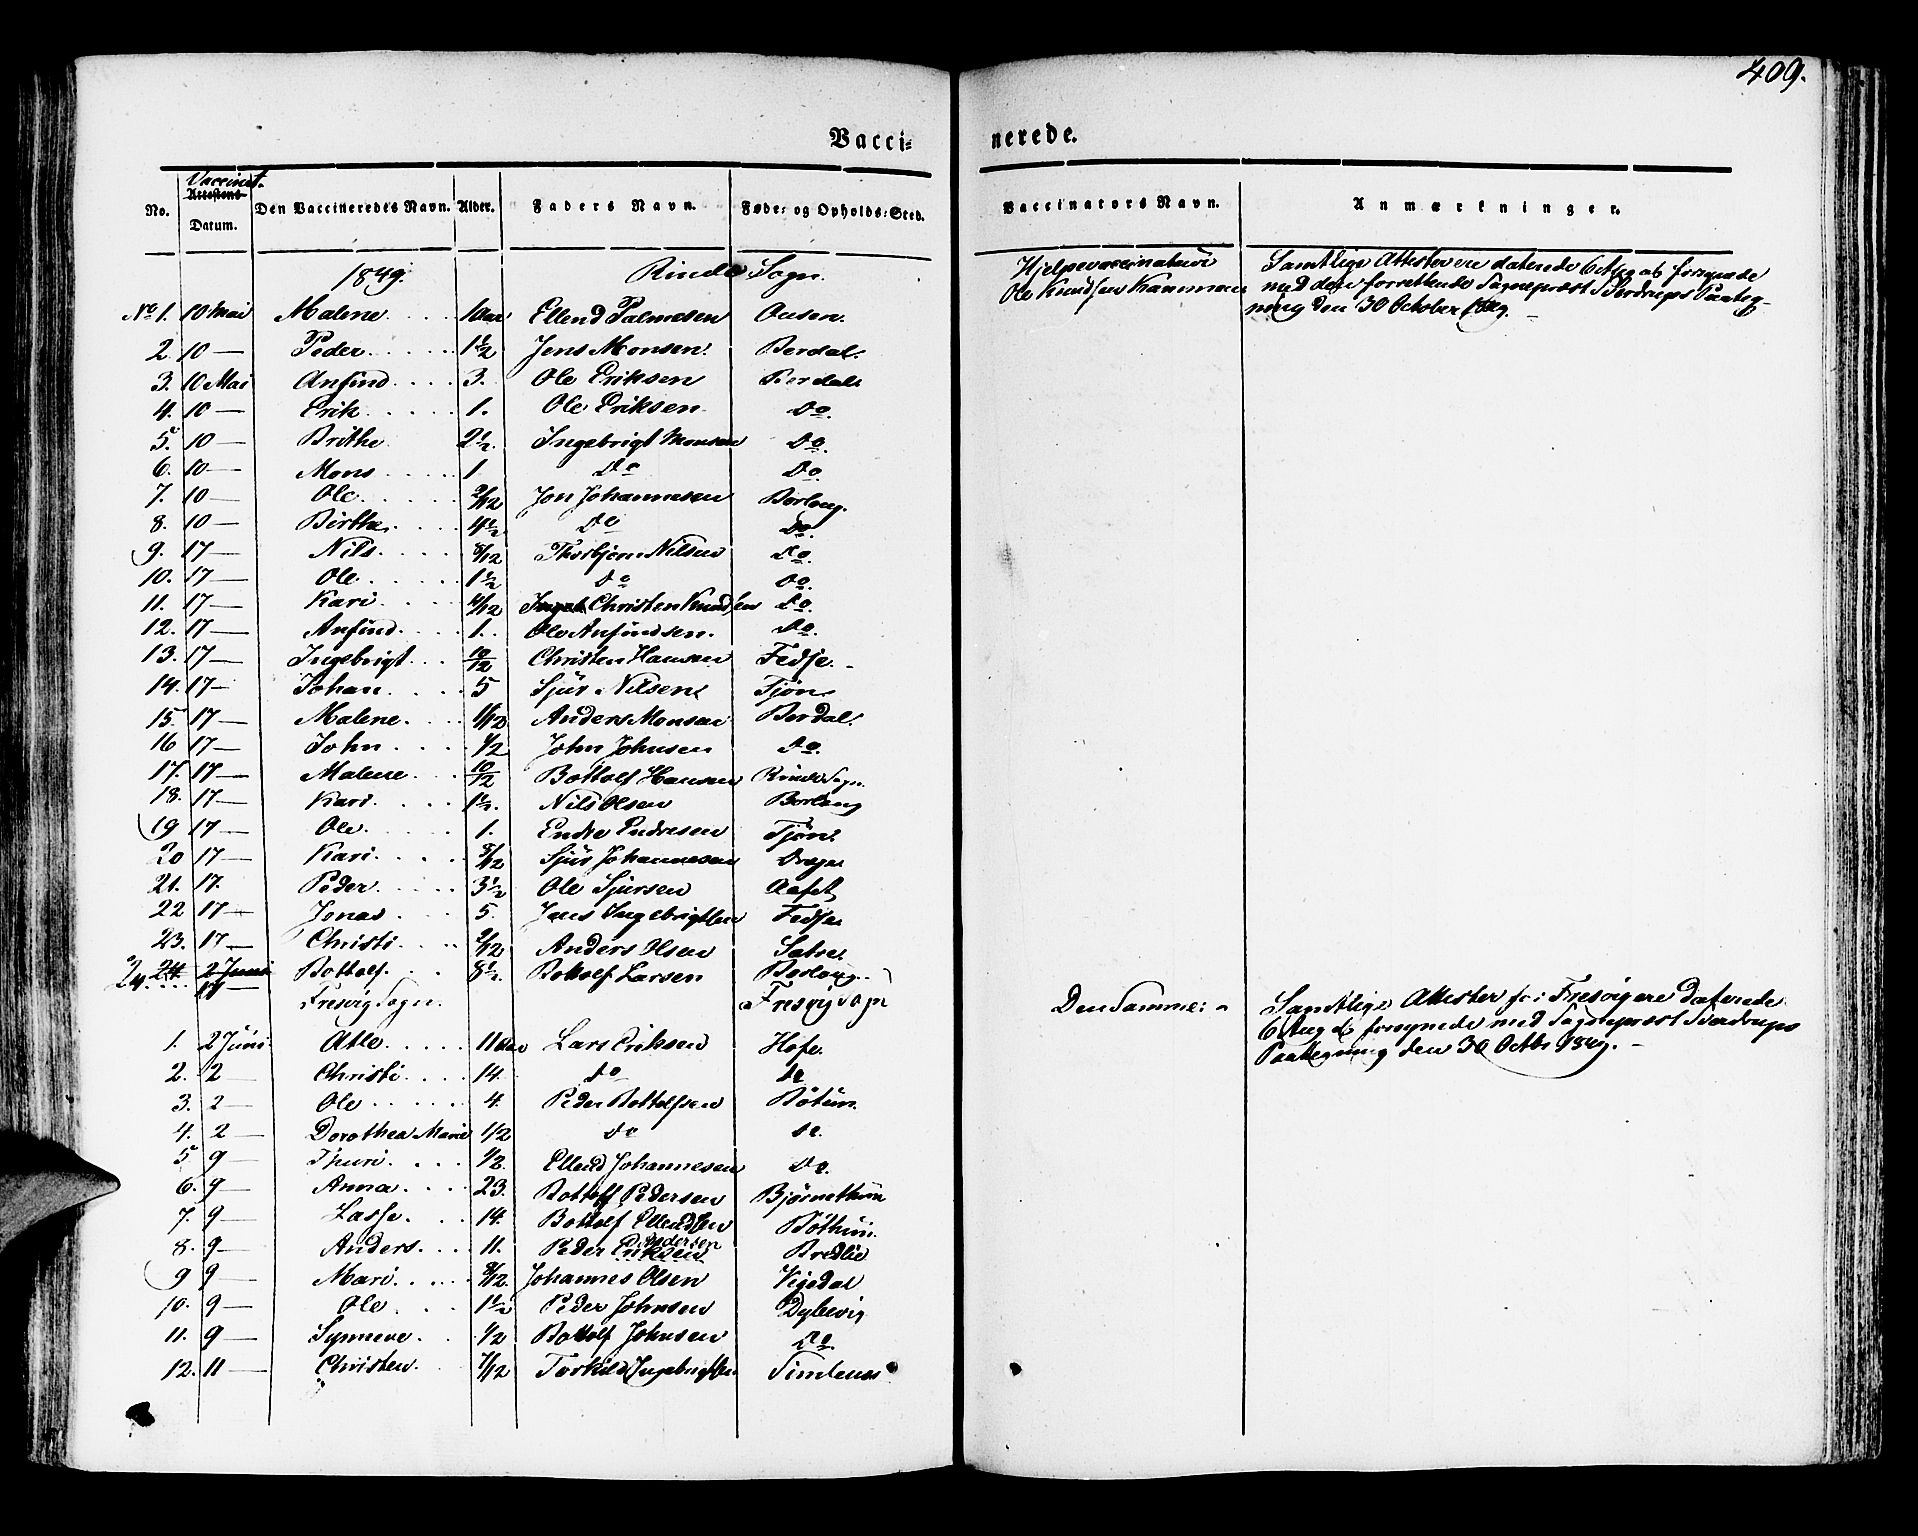 409.
Vacci=
nerede.
No. Vaccinat. Attestens Datum. Den Vaccineredes Navn. Alder. Faders Navn. Føde= og Opholds=Sted.
Vaccinators Navn. Anmærkninger.
1849. Rinde Sogn.
No 1. 10 Mai Malene 1 Aar Ellend Palmesen Ousen.
2. 10 — Peder 1 1/2 Jens Monsen. Berdal.
3. 10 Mai Anfind 3. Ole Eriksen Berdal
4. 10 — Erik 1. Ole Eriksen Do.
5. 10 — Brithe 2 1/2. Ingebrigt Monsen Do.
6. 10 — Mons 1 Do Do.
7. 10 — Ole 9/12 Jon Johannesen Borlaug.
8. 10 — Birthe 4 1/2 Do Do.
9. 17 — Nils 8/12 Thorbjørn Nilsen Do.
10. 17 — Ole 1 1/2 Do Do.
11. 17 — Kari Christen Knudsen Do.
12. 17 — Anfind 1. Ole Anfindsen. Do.
13. 17 — Ingebrigt 10/12 Christen Hansen Fedse.
14. 17 — Johan 5 Sjur Nilsen Tjøn
15. 17 — Malene Anders Monsen Berdal.
16 17 — John 1/2 John Johnsen Do.
17. 17 — Malene 10/12 Bottolf Hansen Rinde Sogn.
18. 17 — Kari 1 1/2. Nils Olsen Borlaug
19 17 — Ole 1. Endre Endresen Tjøn.
20 17 — Kari 8/12 Sjur Johannesen
21. 17. Peder 3 1/2 Ole Sjursen Aafet
22 17 — Jonas 5. Jens Ingebrigtsen Fedse
23. 17 — Christi 9/12 Anders Olsen Satre
24. 24 2 Juni 17 — Bottolf 8 1/2. Bottolf Larsen Borlaug
Fresvig Sogn. Fresvig Sogn
1. 2 Juni Atle 11 Aar Lars Eriksen Hofe.
2. 2 — Christi 14. Do Do
3. 2 — Ole 4. Peder Bottolfsen Bøtun.
4. 2 — Dorothea Marie 1/2 Do Do.
5 9 — Thuri 1/2. Ellend Johannesen Do.
6. 9 — Anna 23. Bottolf Pedersen Bjørnethun
7. 9 — Lasse 14. Bottolf Ellendsen Bøthun.
8. 9 — Anders 11. Peder Eriksen Andersen Bredlie
9 9 — Mari 8/12. Johannes Olsen Vigedal
10. 9 — Ole 1 1/2 Peder Johnsen Dylevig
11. 9 — Synneve 1/2 Bottolf Johnsen Do.
12. 11 — Christen 7/12 Torkild Ingebrigtsen Simlenes
Hjelpevaccinateur
Ole Knudsen Hamman
Samtlige Attester ere daterede 6 Aug og forsynede
med den forrettende Sognepræst Sverdrups Paateg-
ning den 30 October 1849. —
Den Samme. —
Samtlige Attester for Fresvig ere daterede
6 Aug og forsynede med Sognepræst Sverdrups
Paategning den 30 Octbr 1849. —